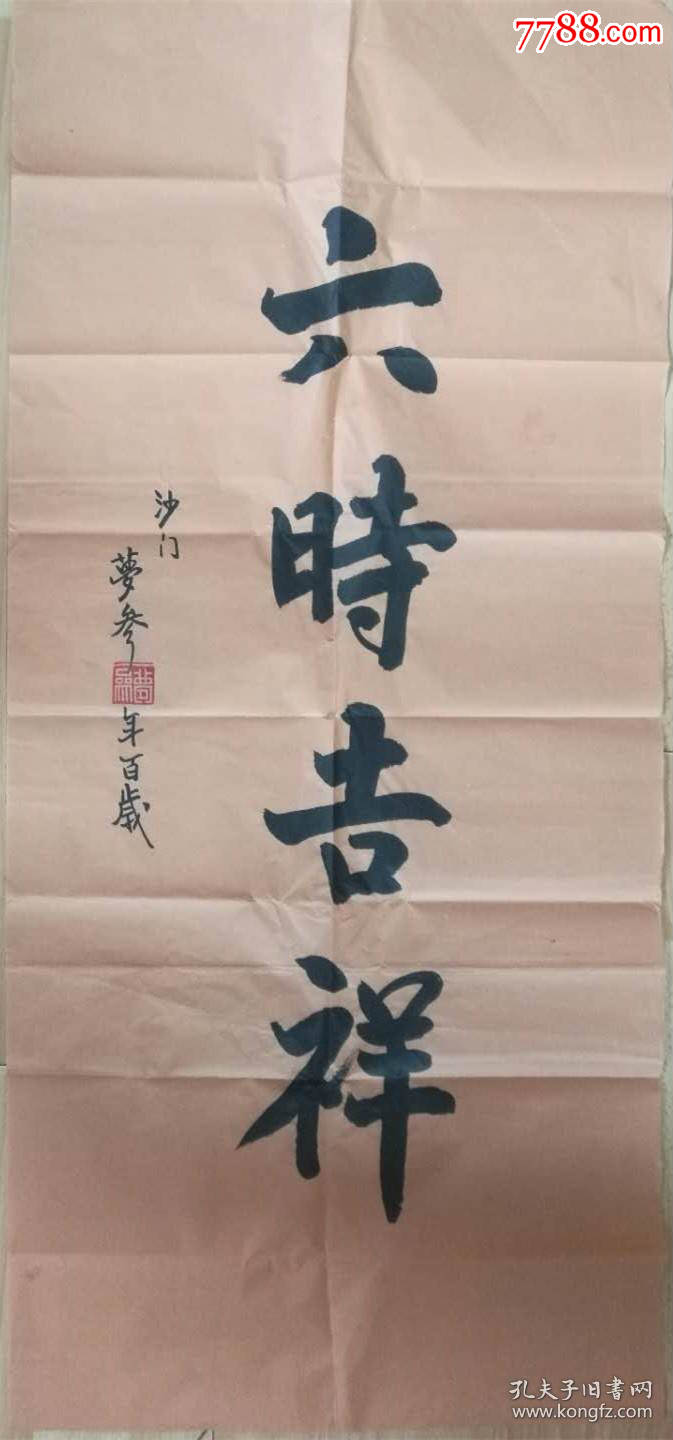 7788.com
六時吉祥
沙门
夢参
年百歳
孔夫子旧書网
www.kongfz.com